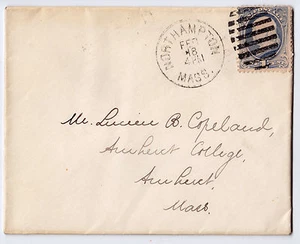 NORTHAMPTON
FEB
18
4 PM
MASS.
Mr. Lucien B. Copeland,
Amherst College,
Amherst,
Mass.